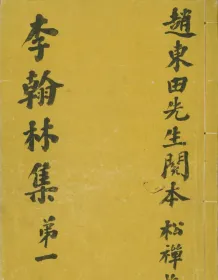 趙東田先生閱本 松禪
李翰林集 第一